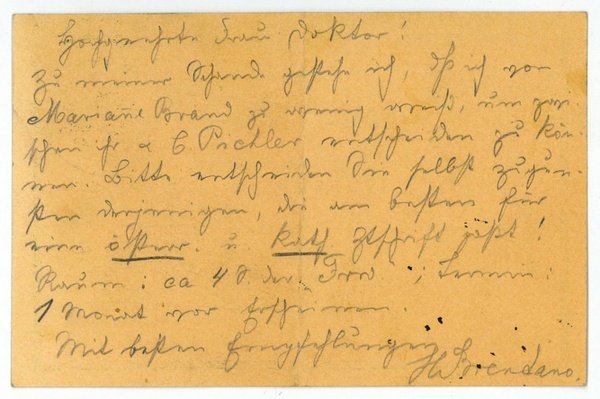 Hochgeehrte Frau Doktor!
Zu meiner Schande gestehe ich, dß ich von
Mariane Brand zu wenig weiß, um zwi-
schen ihr & C Pichler entscheiden zu kön-
nen. Bitte entscheiden Sie selbst zugun-
sten derjenigen, die am besten für
eine österr. u. kath Ztschrift paßt!
Raum: ca 4 S. der ; Termin:
1 Monat vor Erscheinen.
Mit besten Empfehlungen
H Brentano.